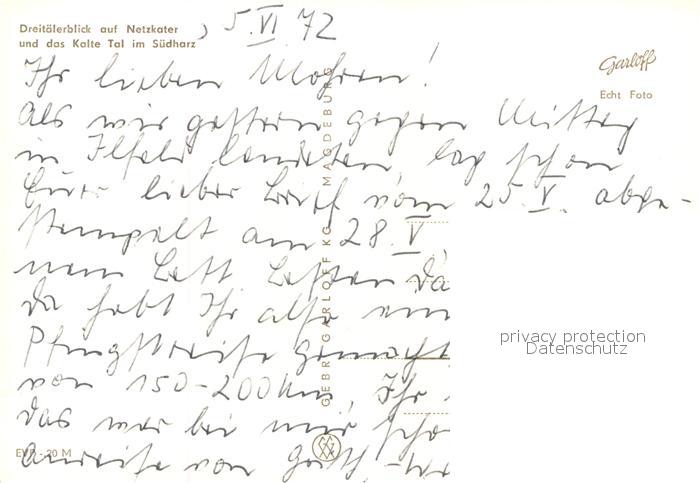 Dreitälerblick auf Netzkater
und das Kalte Tal im Südharz
Garloff
Echt Foto
5. VI 72
Ihr lieben Mohren!
Als wir gestern gegen Mittag
in Ilfeld landeten, lag schon
Euer lieber Brief vom 25. V. abge-
stempelt am 28. V,
Da habt Ihr also
Pfingstreise gemacht
von 150-200 km, Ihr
das war bei mir scho
Anreise von
GEBR. GARLOFF KG MAGDEBURG
EVP -.20 M
privacy protection
Datenschutz